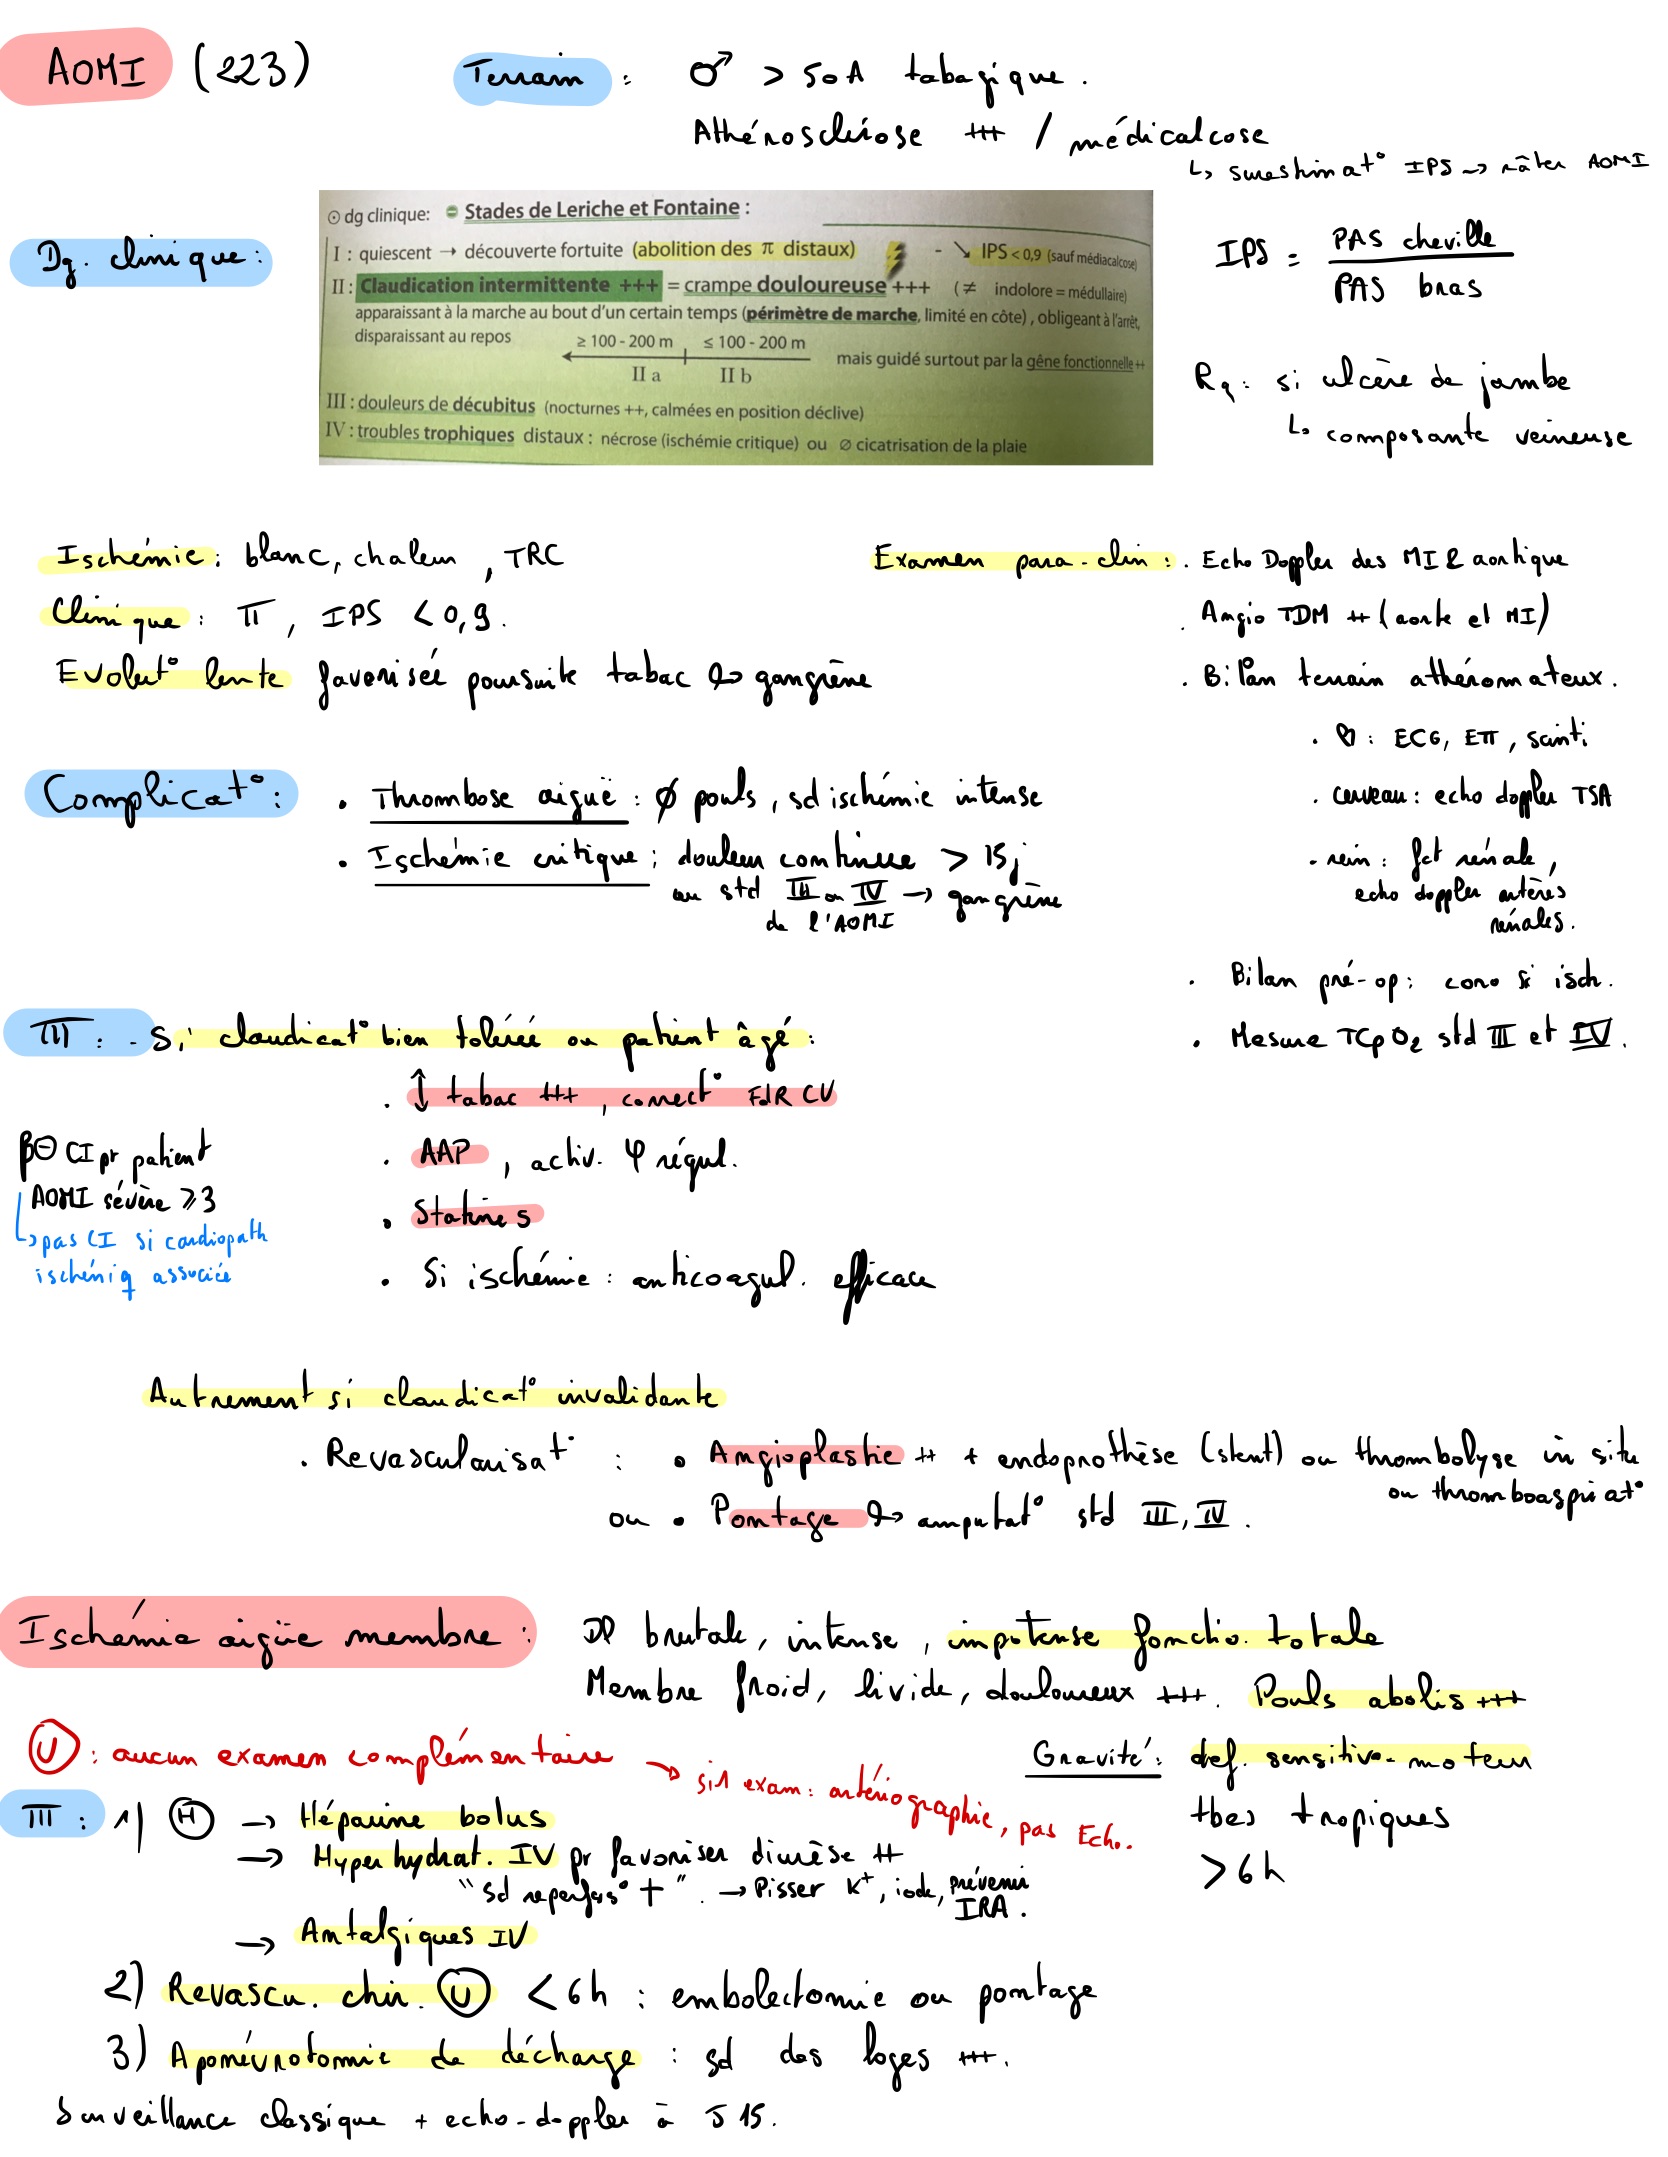 AOMI (223)
Terrain : ♂ > 50A tabagique.
Athérosclérose +++ / médicalcose
↳ surestimat° IPS → râter AOMI
Dg. clinique :
⊙ dg clinique: ⊖ Stades de Leriche et Fontaine :
I : quiescent → découverte fortuite (abolition des π distaux) - ↘ IPS < 0,9 (sauf médiacalcose)
II : Claudication intermittente +++ = crampe douloureuse +++ (≠ indolore = médullaire)
apparaissant à la marche au bout d'un certain temps (périmètre de marche, limité en côte), obligeant à l'arrêt,
disparaissant au repos
≥ 100 - 200 m ≤ 100 - 200 m
mais guidé surtout par la gêne fonctionnelle ++
II a II b
III : douleurs de décubitus (nocturnes ++, calmées en position déclive)
IV : troubles trophiques distaux : nécrose (ischémie critique) ou ∅ cicatrisation de la plaie
IPS = PAS cheville
PAS bras
Rq : si ulcère de jambe
↳ composante veineuse
Ischémie : blanc, chaleur, TRC
Clinique : π, IPS < 0,9.
Evolut° lente favorisée poursuite tabac ↪ gangrène
Examen para-clin : . Echo Doppler des MI & aortique
. Angio TDM ++ (aorte et MI)
. Bilan terrain athéromateux.
. ♡ : ECG, ETT, scinti
. cerveau : echo doppler TSA
- rein : fct rénale,
echo doppler artères
rénales.
. Bilan pré-op : coro si isch.
. Mesure TCpO2 std III et IV.
Complicat° :
. Thrombose aigue : ∅ pouls, sd ischémie intense
. Ischémie critique ; douleur continue > 15j
au std III ou IV → gangrène
de l'AOMI
TTT : - Si claudicat° bien tolérée ou patient âgé :
. ↑ tabac +++, correct° FdR CV
. AAP, activ. φ régul.
. Statines
. Si ischémie : anticoagul. efficace
β⊖ CI pr patient
AOMI sévère ≥3
↳ pas CI si cardiopath
ischéniq associée
Autrement si claudicat° invalidante
. Revascularisat° : • Angioplastie ++ + endoprothèse (stent) ou thrombolyse in situ
ou thromboaspirat°
ou • Pontage ↪ amputat° std III, IV.
Ischémie aigüe membre : Dl brutale, intense, impotense fonctio. totale
Membre froid, livide, douloureux +++. Pouls abolis +++
Ⓤ : aucun examen complémentaire → si 1 exam : artériographie, pas Echo.
Gravité : def. sensitivo-moteur
tbes tropiques
> 6h
TTT : 1) Ⓗ → Héparine bolus
→ Hyperhydrat. IV pr favoriser diurèse ++
"sd reperfus° +". → Pisser K+, iode, prévenir
IRA.
→ Antalgiques IV
2) Revascu. chir. Ⓤ < 6h : embolectomie ou pontage
3) Aponévrotomie de décharge : sd des loges +++.
Surveillance classique + echo-doppler à J15.